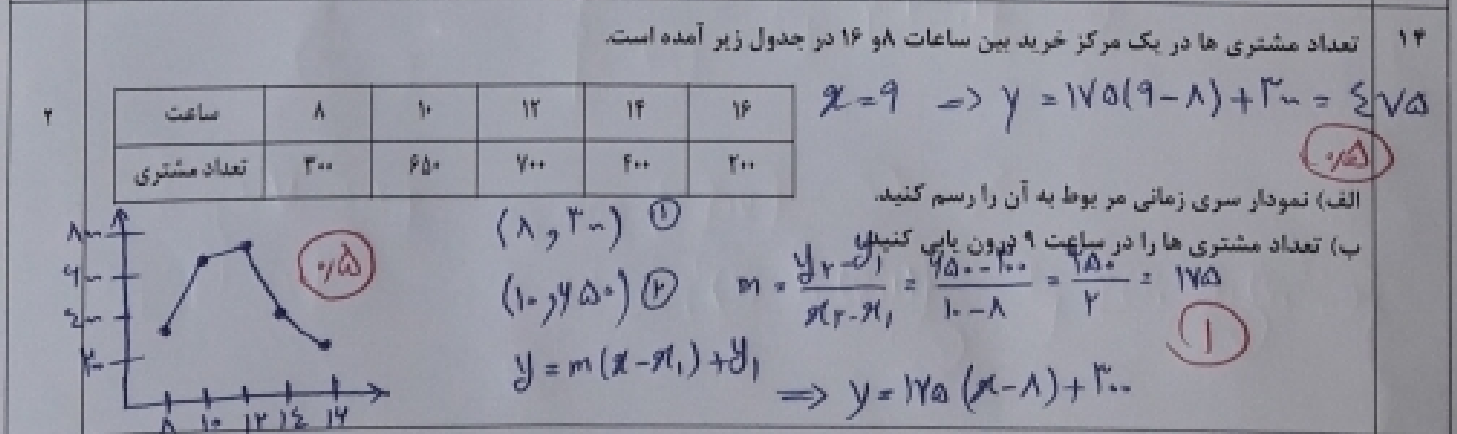 ۱۴
تعداد مشتری ها در یک مرکز خرید بین ساعات ۸و ۱۶ در جدول زیر آمده است.
۲
ساعت ۸ ۱۰ ۱۲ ۱۴ ۱۶
تعداد مشتری ۳۰۰ ۶۵۰ ۷۰۰ ۴۰۰ ۲۰۰
x = 9 => y = ۱۷۵(9-۸)+۳۰۰ = ٤۷۵
۰/۵
الف) نمودار سری زمانی مر بوط به آن را رسم کنید.
ب) تعداد مشتری ها را در ساعت ۹ درون یابی کنید.
(۸ و ۳۰۰) ①
(۱۰ و ۶۵۰) ②
m = y۲-y۱ / x۲-x۱ = ۶۵۰-۳۰۰ / ۱۰-۸ = ۳۵۰ / ۲ = ۱۷۵
۱
y = m(x-x۱)+y۱
=> y = ۱۷۵(x-۸)+۳۰۰
۰/۵
۸۰۰
۶۰۰
٤۰۰
۲۰۰
۸ ۱۰ ۱۲ ۱٤ ۱۶